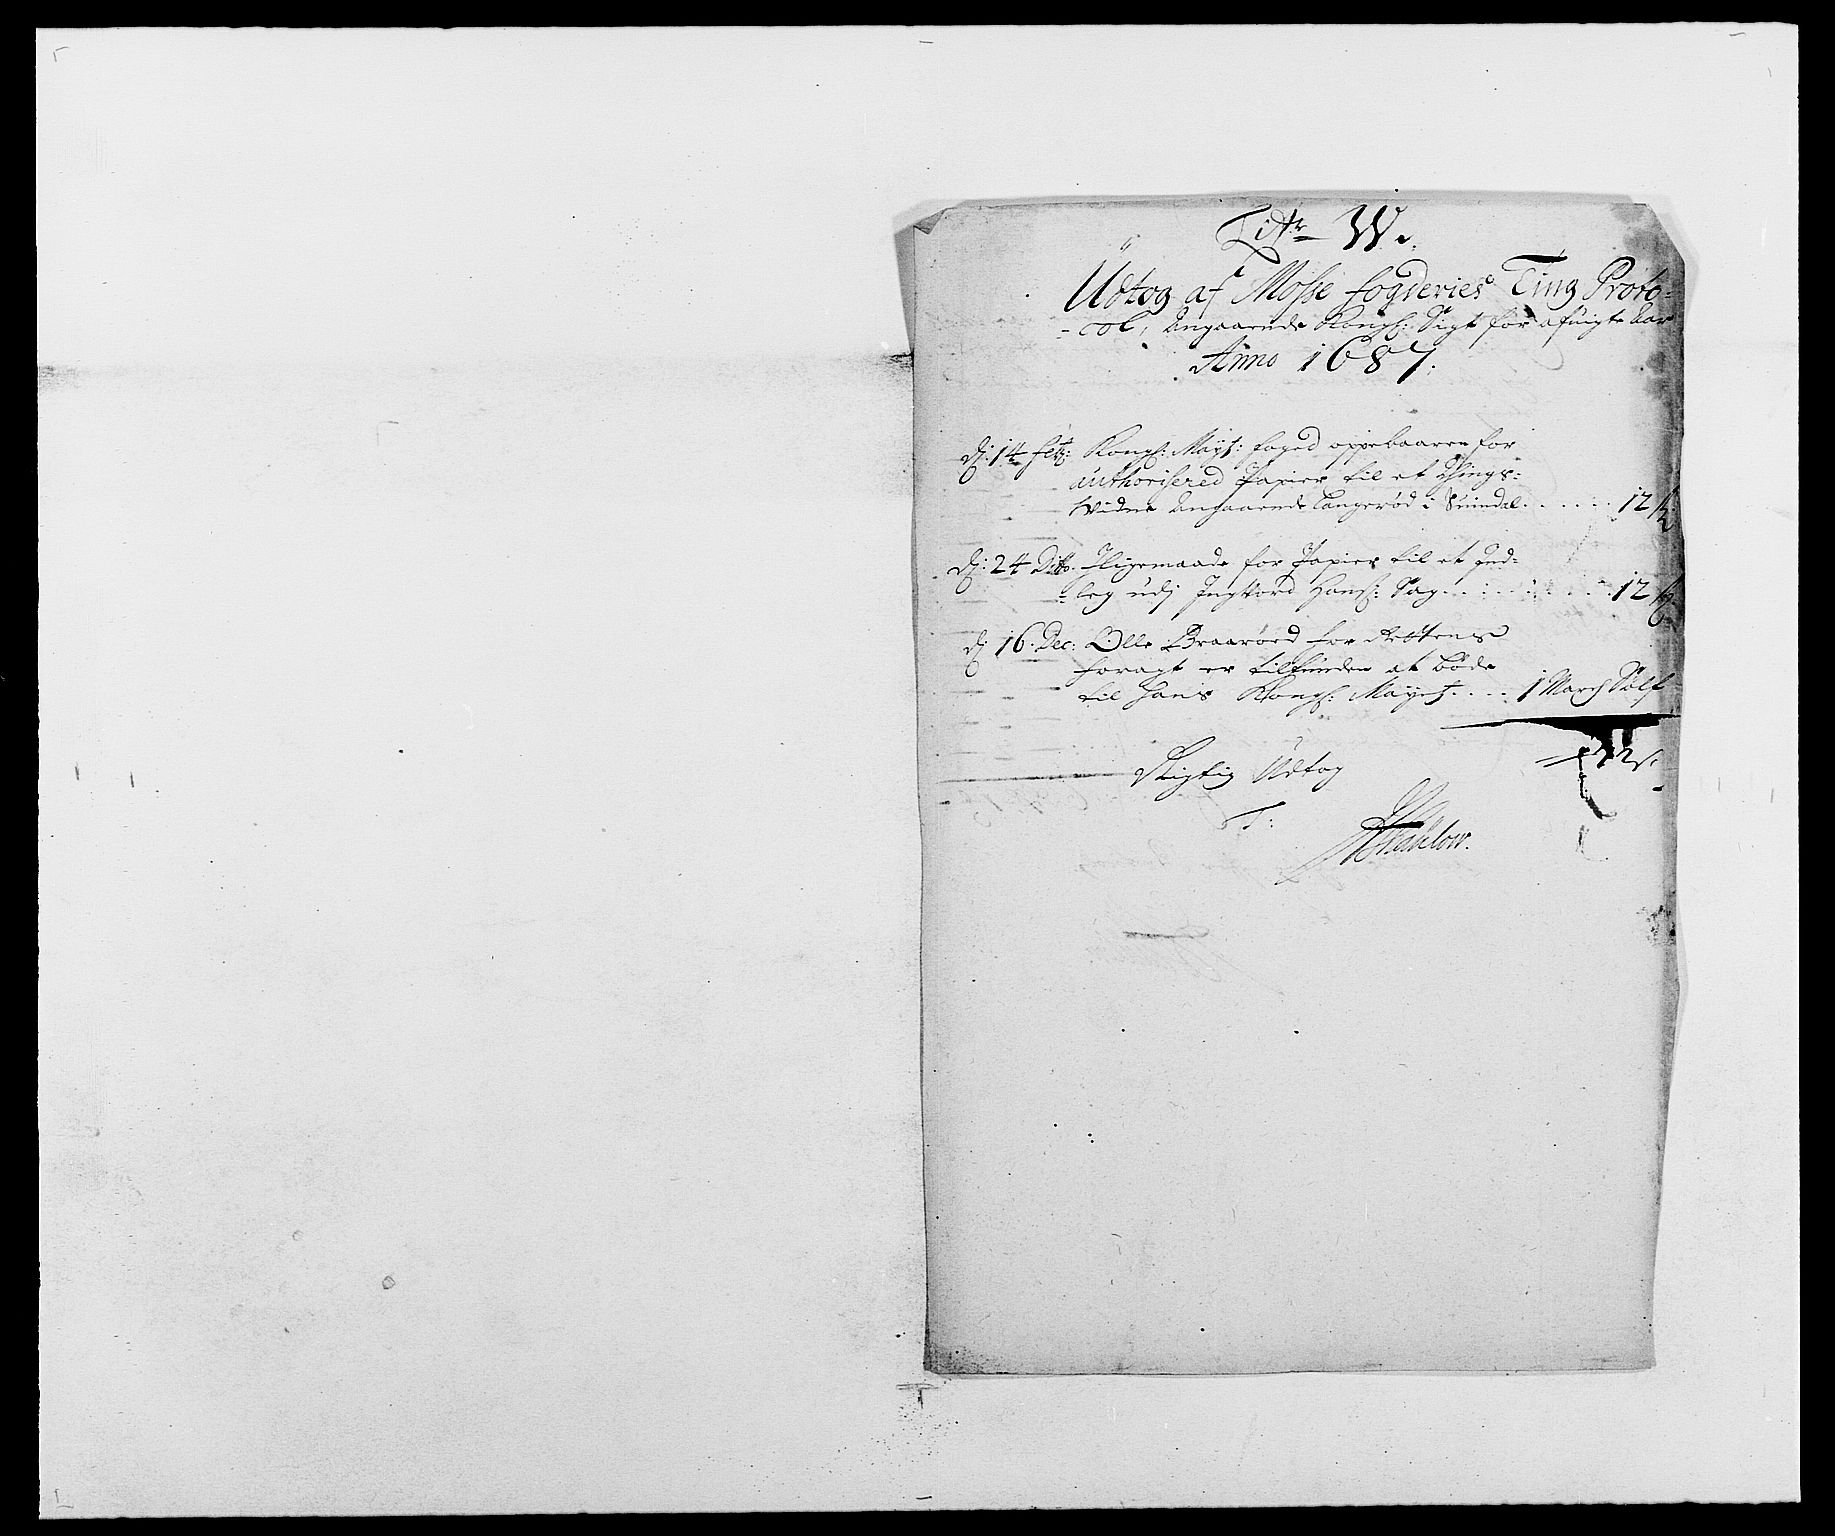 Littr W.
Udtog af Mosse fogderies Ting Proto-
-col, Angaaende Kongl: Sigt for afvigte Aar
Anno 1687.
D: 14 feb: Kongl: Mayt: foged oppebaaren for
authorisered Papier til et Tings-
Vidne Angaaende Langerød i Svindal . . . . . . 12 ß
D: 24 Ditto. Jligemaade for Papier til et Ind-
-leg udj Ingvord Hans: Sag . . . . . . . . 12 ß
D: 16. Dec: Olle Braarøed for Rettens
foragt er tilfunden at bøde
til Hans Kongl: Mayest . . . . 1 March Sølf
Rigtig Udtog
T: